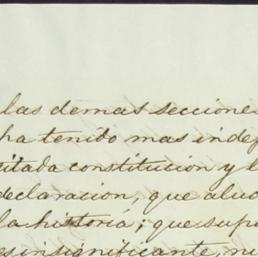 las demas seccione
ha tenido mas indep
citada constitución y l
declaracion, que alud
la historia; que sup
es insignificante, ni